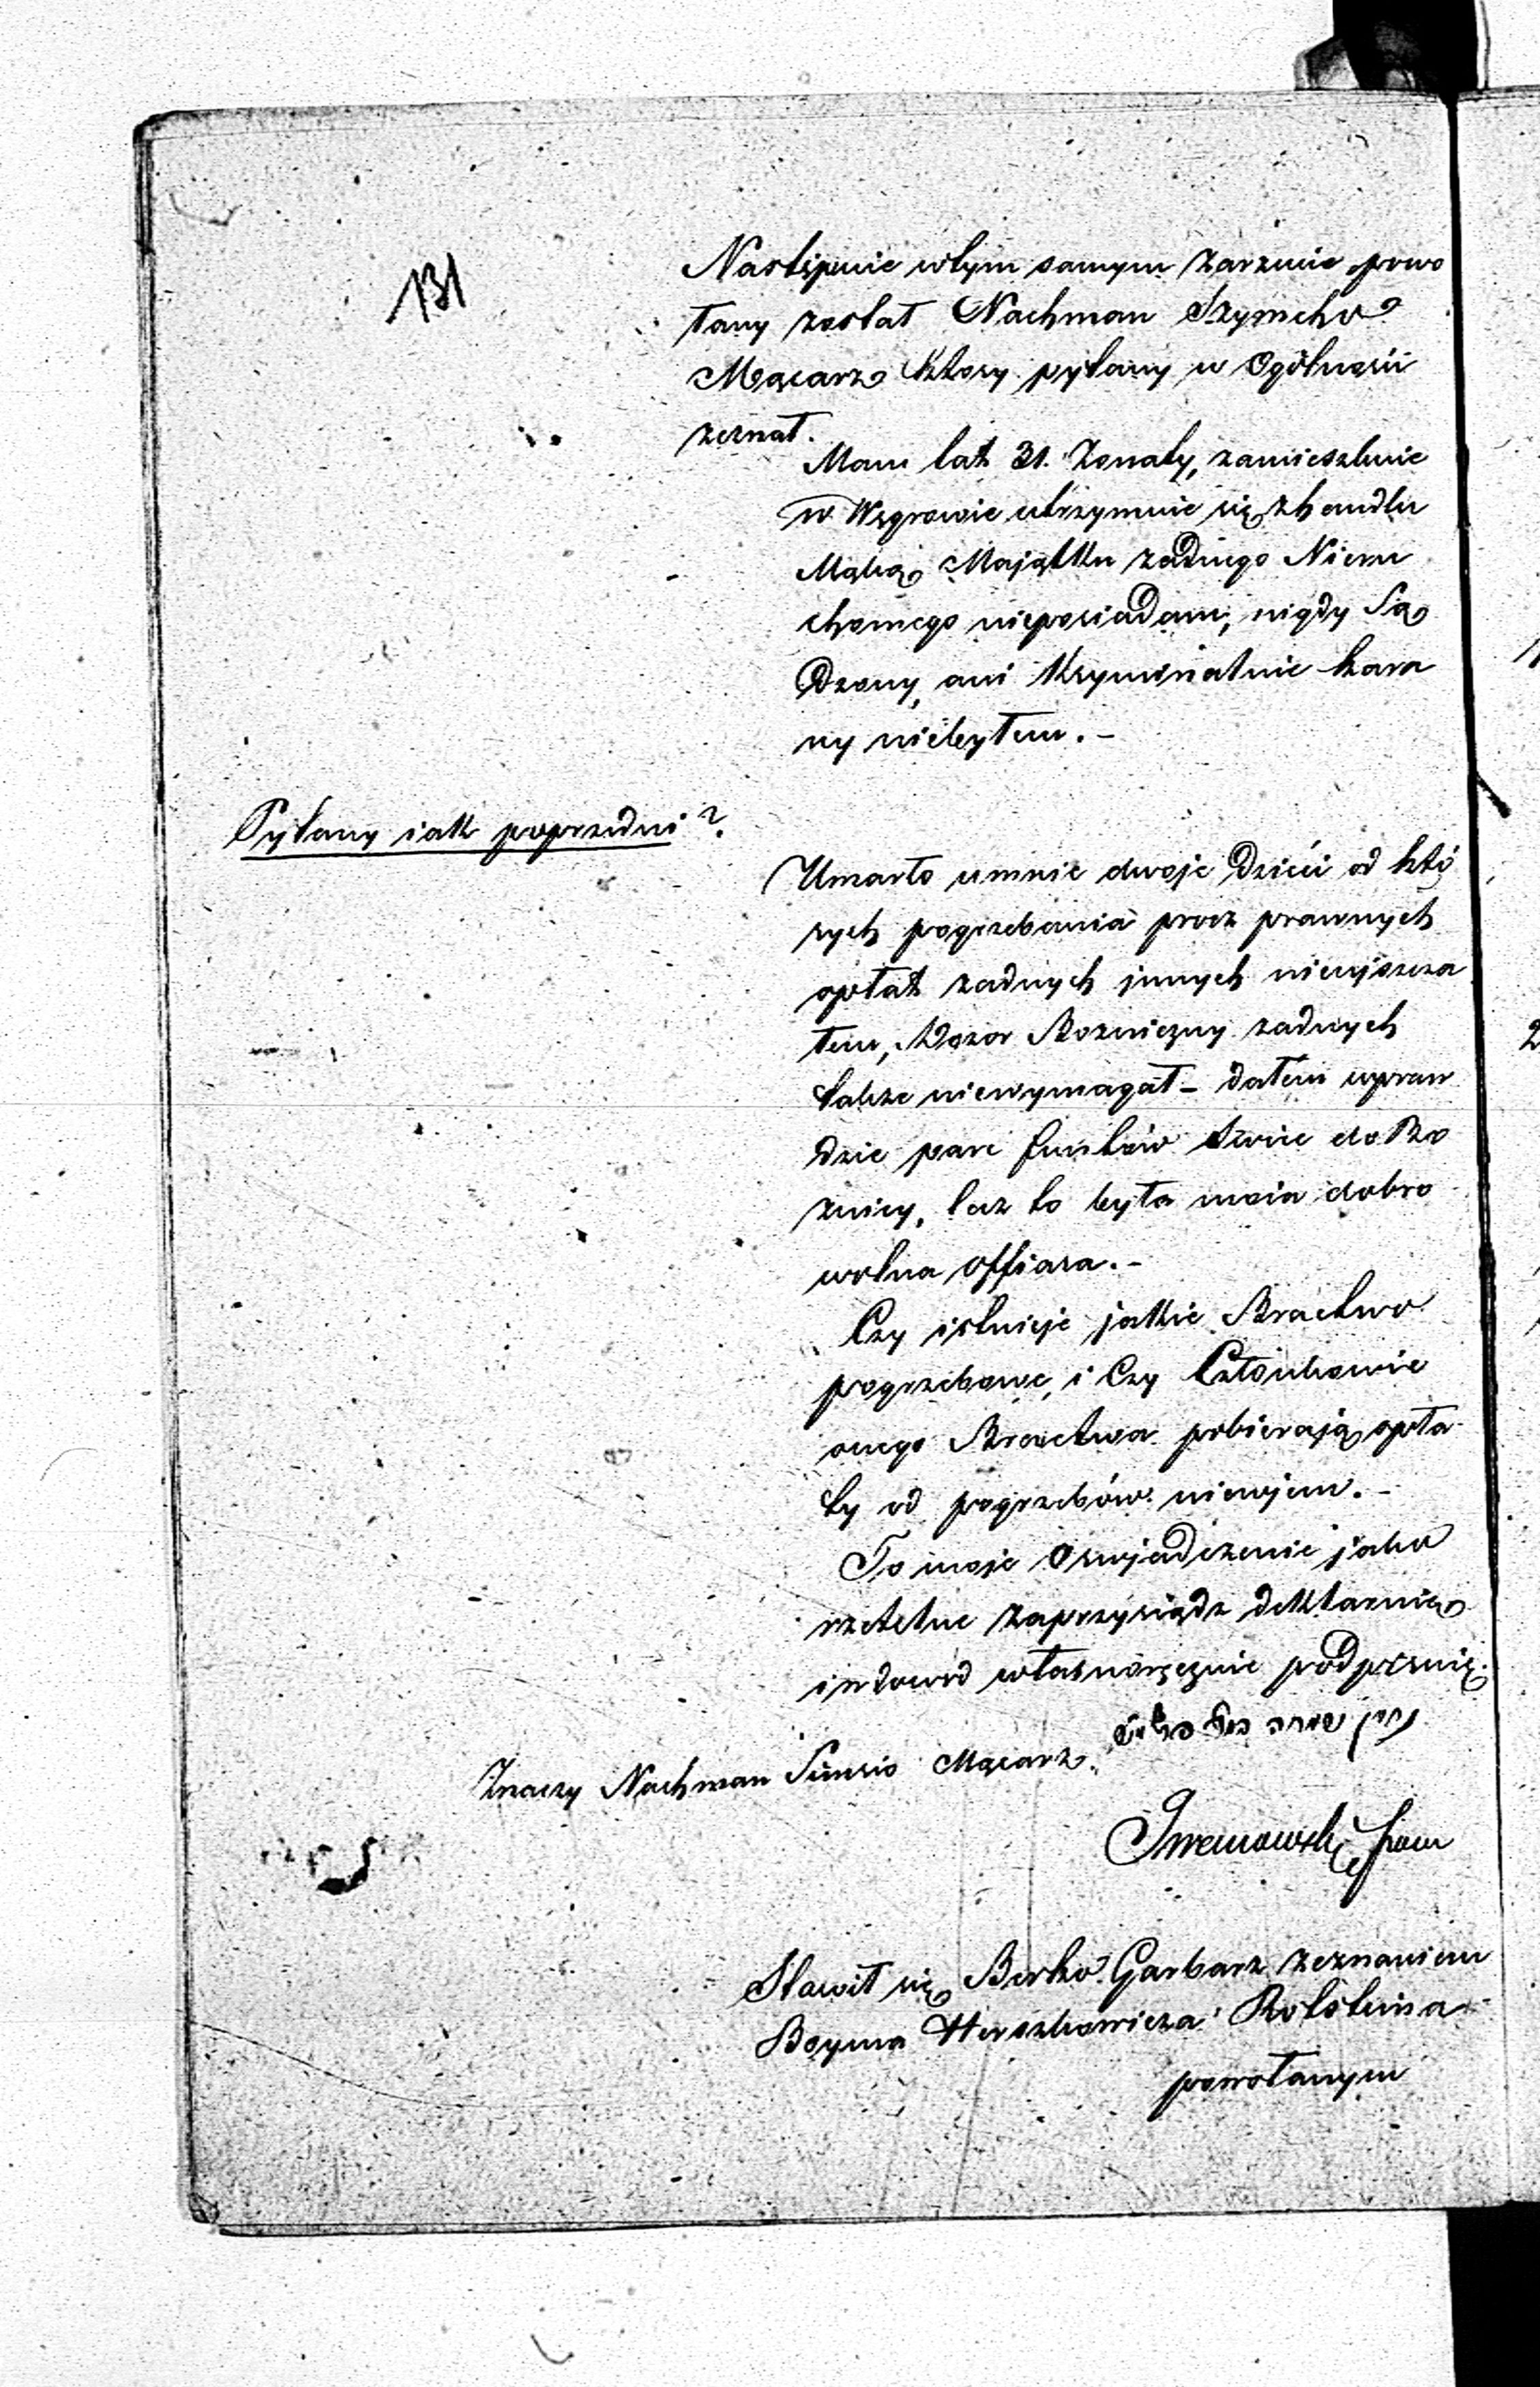 131
Następnie wtym samym zarzucie powo
łany został Nachman Szymcho
Mącarz ktory pytany w Ogólności
zeznał.
Mam lat 31. Zonaty, zamieszkuie
w Węgrowie utrzymuie się zhandlu
Mąką, Majątku żadnego Nieru
chomego nieposiadam, nigdy Są
dzony, ani Kryminalnie kara
ny niebyłem. -
Pytany iak poprzedni?
Umarło umnie dwoje Dzieci od któ
rych pogrzebania procz prawnych
opłat żadnych jnnych nieujszcza
łem, Dozor Bozniczny żadnych
także niewymagał - dałem wpraw
dzie pare funtów świec do Bo
żnicy, lecz to była moia dobro
wolna offiara. -
Czy istnieje jakie Bractwo
pogrzebowe, i Czy Członkowie
onego Bractwa pobierają opła
ty od pogrzebów niewjem. -
To moje Oswjadczenie jako
rzetelne zaprzysiądz deklaruię
i n dowod własnoręcznie podpisuię.
Znaczy Nachman Simcio Mącarz.
Stawił się Berko Garbarz zeznaniem
Boyma Herszkowicza Rotsteina
powołanym